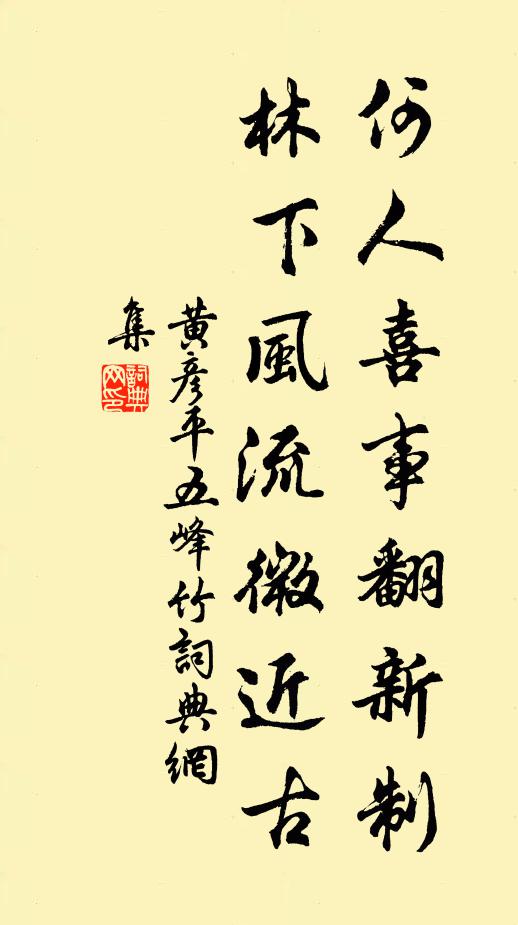 何人喜事翻新制
林下風流微近古
黃彥平五峰竹詞典網
集
詞典網印